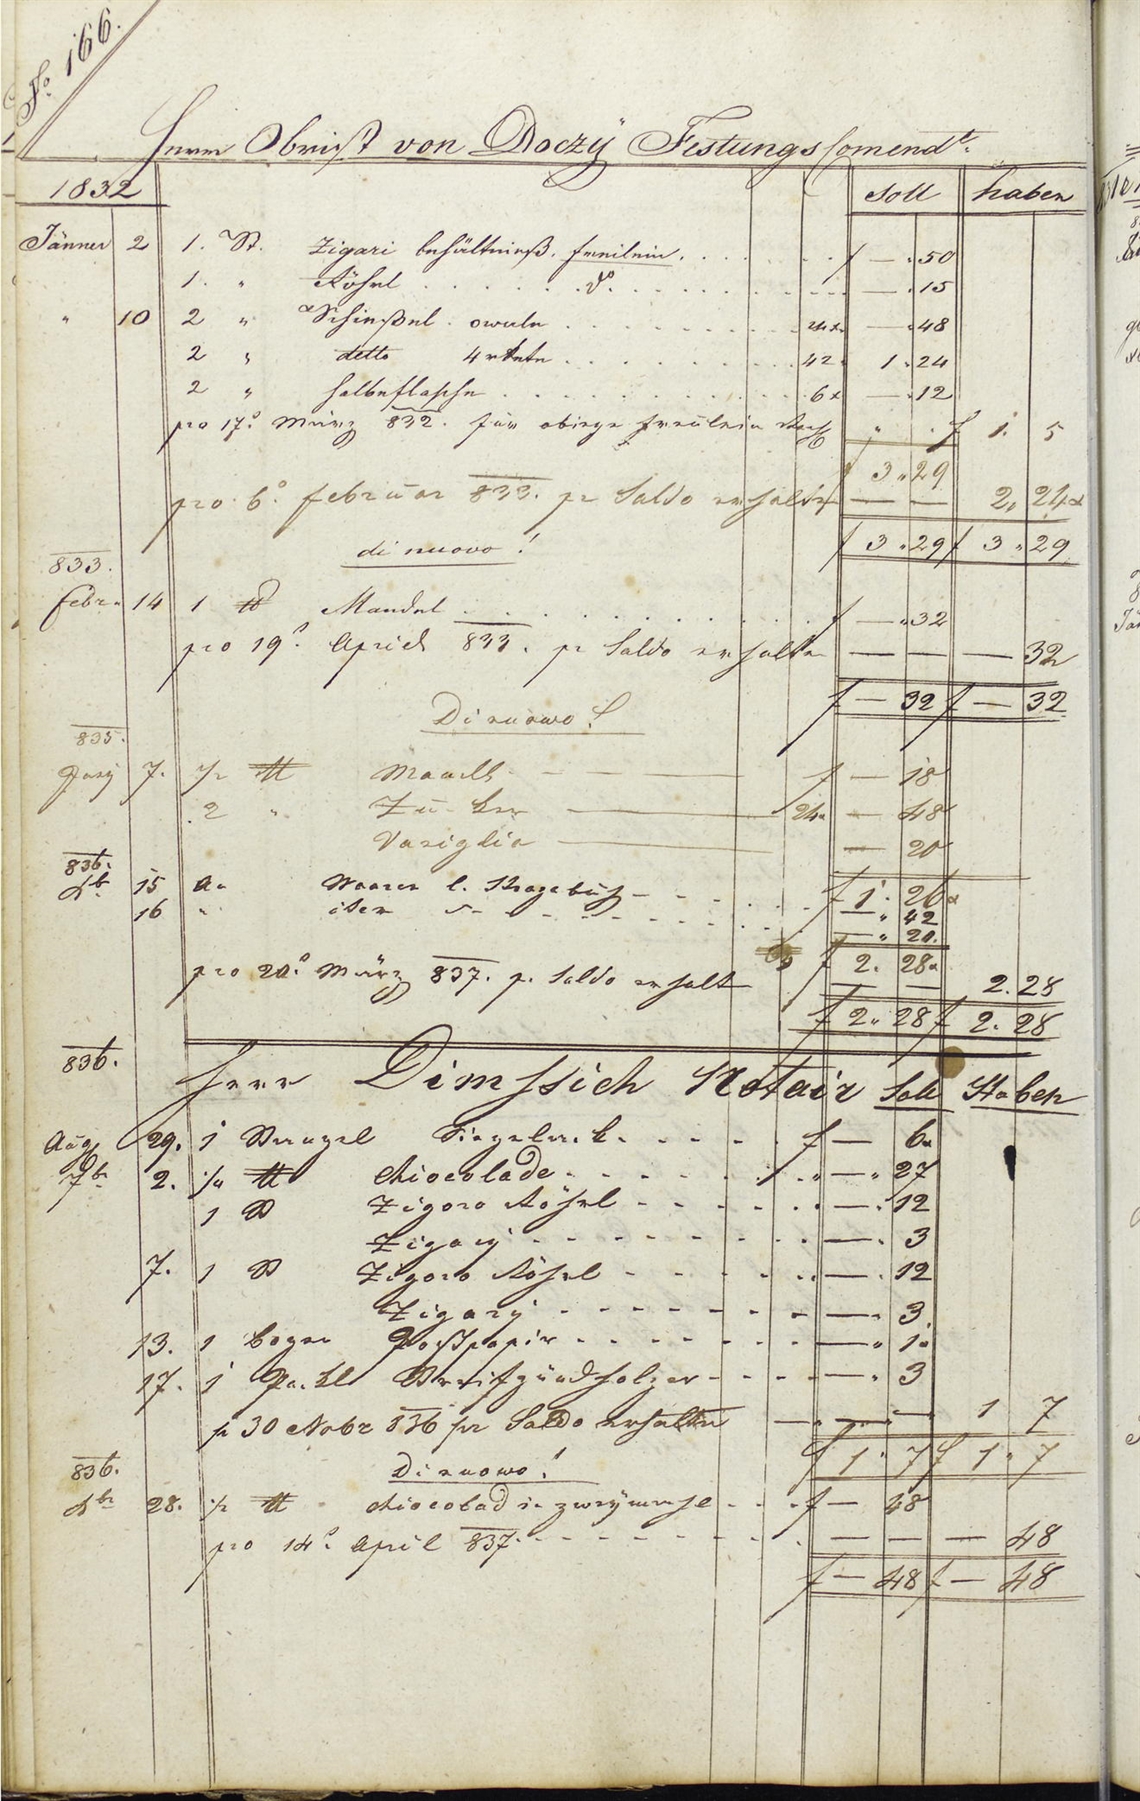 No. 166.
Herrn Obrist von Doczÿ Festungs Comendt.
1832 Soll haben
Jänner 2 1. St. Zigari behältnieß. freilein. f — . 50
1. " Röhrl do. — . 15
" 10 2 " Schießel. owale 24x — . 48
2 " detto 4 42 1 . 24
2 " halbeflasche 6x — . 12
pro 17o. März 832. für obiege freülein " . f 1. 5
f 3 . 29
pro 6o. februar 833. pr Saldo erhalten — — 2. 24x
f 3 . 29 f 3 . 29
di nuovo!
833.
febr. 14 1 ℔ Mandel f — . 32
pro 19o. April 833. pr Saldo erhalten — — — 32
f — 32 f — 32
Di nuowo!
835.
7. ½ ℔ f — 18
2 " Zucker 24x — 48
Vaniglia — 20
f 1. 26x
836.
Xbr 15 a. Waaren l. — " 42
16 " — " 20.
f 2. 28x
pro 20o März 837. p. Saldo erhalt — — 2. 28
f 2. 28 f 2. 28
836.
Herr Dimssich Notair Soll Haben
Aug 29. 1 Stangel Siegelack f — 6x
7br 2. ¼ ℔ Chiocolade " — " 27
1 St Zigoro Röhrl — . 12
Zigarÿ — . 3
7. 1 St Zigoro Röhrl — . 12
Zigarÿ — . 3
13. 1 bogen Postpapir — " 1"
17. 1 Packl Streifzündholzer — " 3
p 30 Nobr 836 pr Saldo erhalten — — 1 7
f 1 . 7 f 1 . 7
836. Di nuowo!
Xbr 28. ½ ℔ Chiocolad in zweÿmahl f — 48
pro 14o April 837. — — — 48
f — 48 f — 48